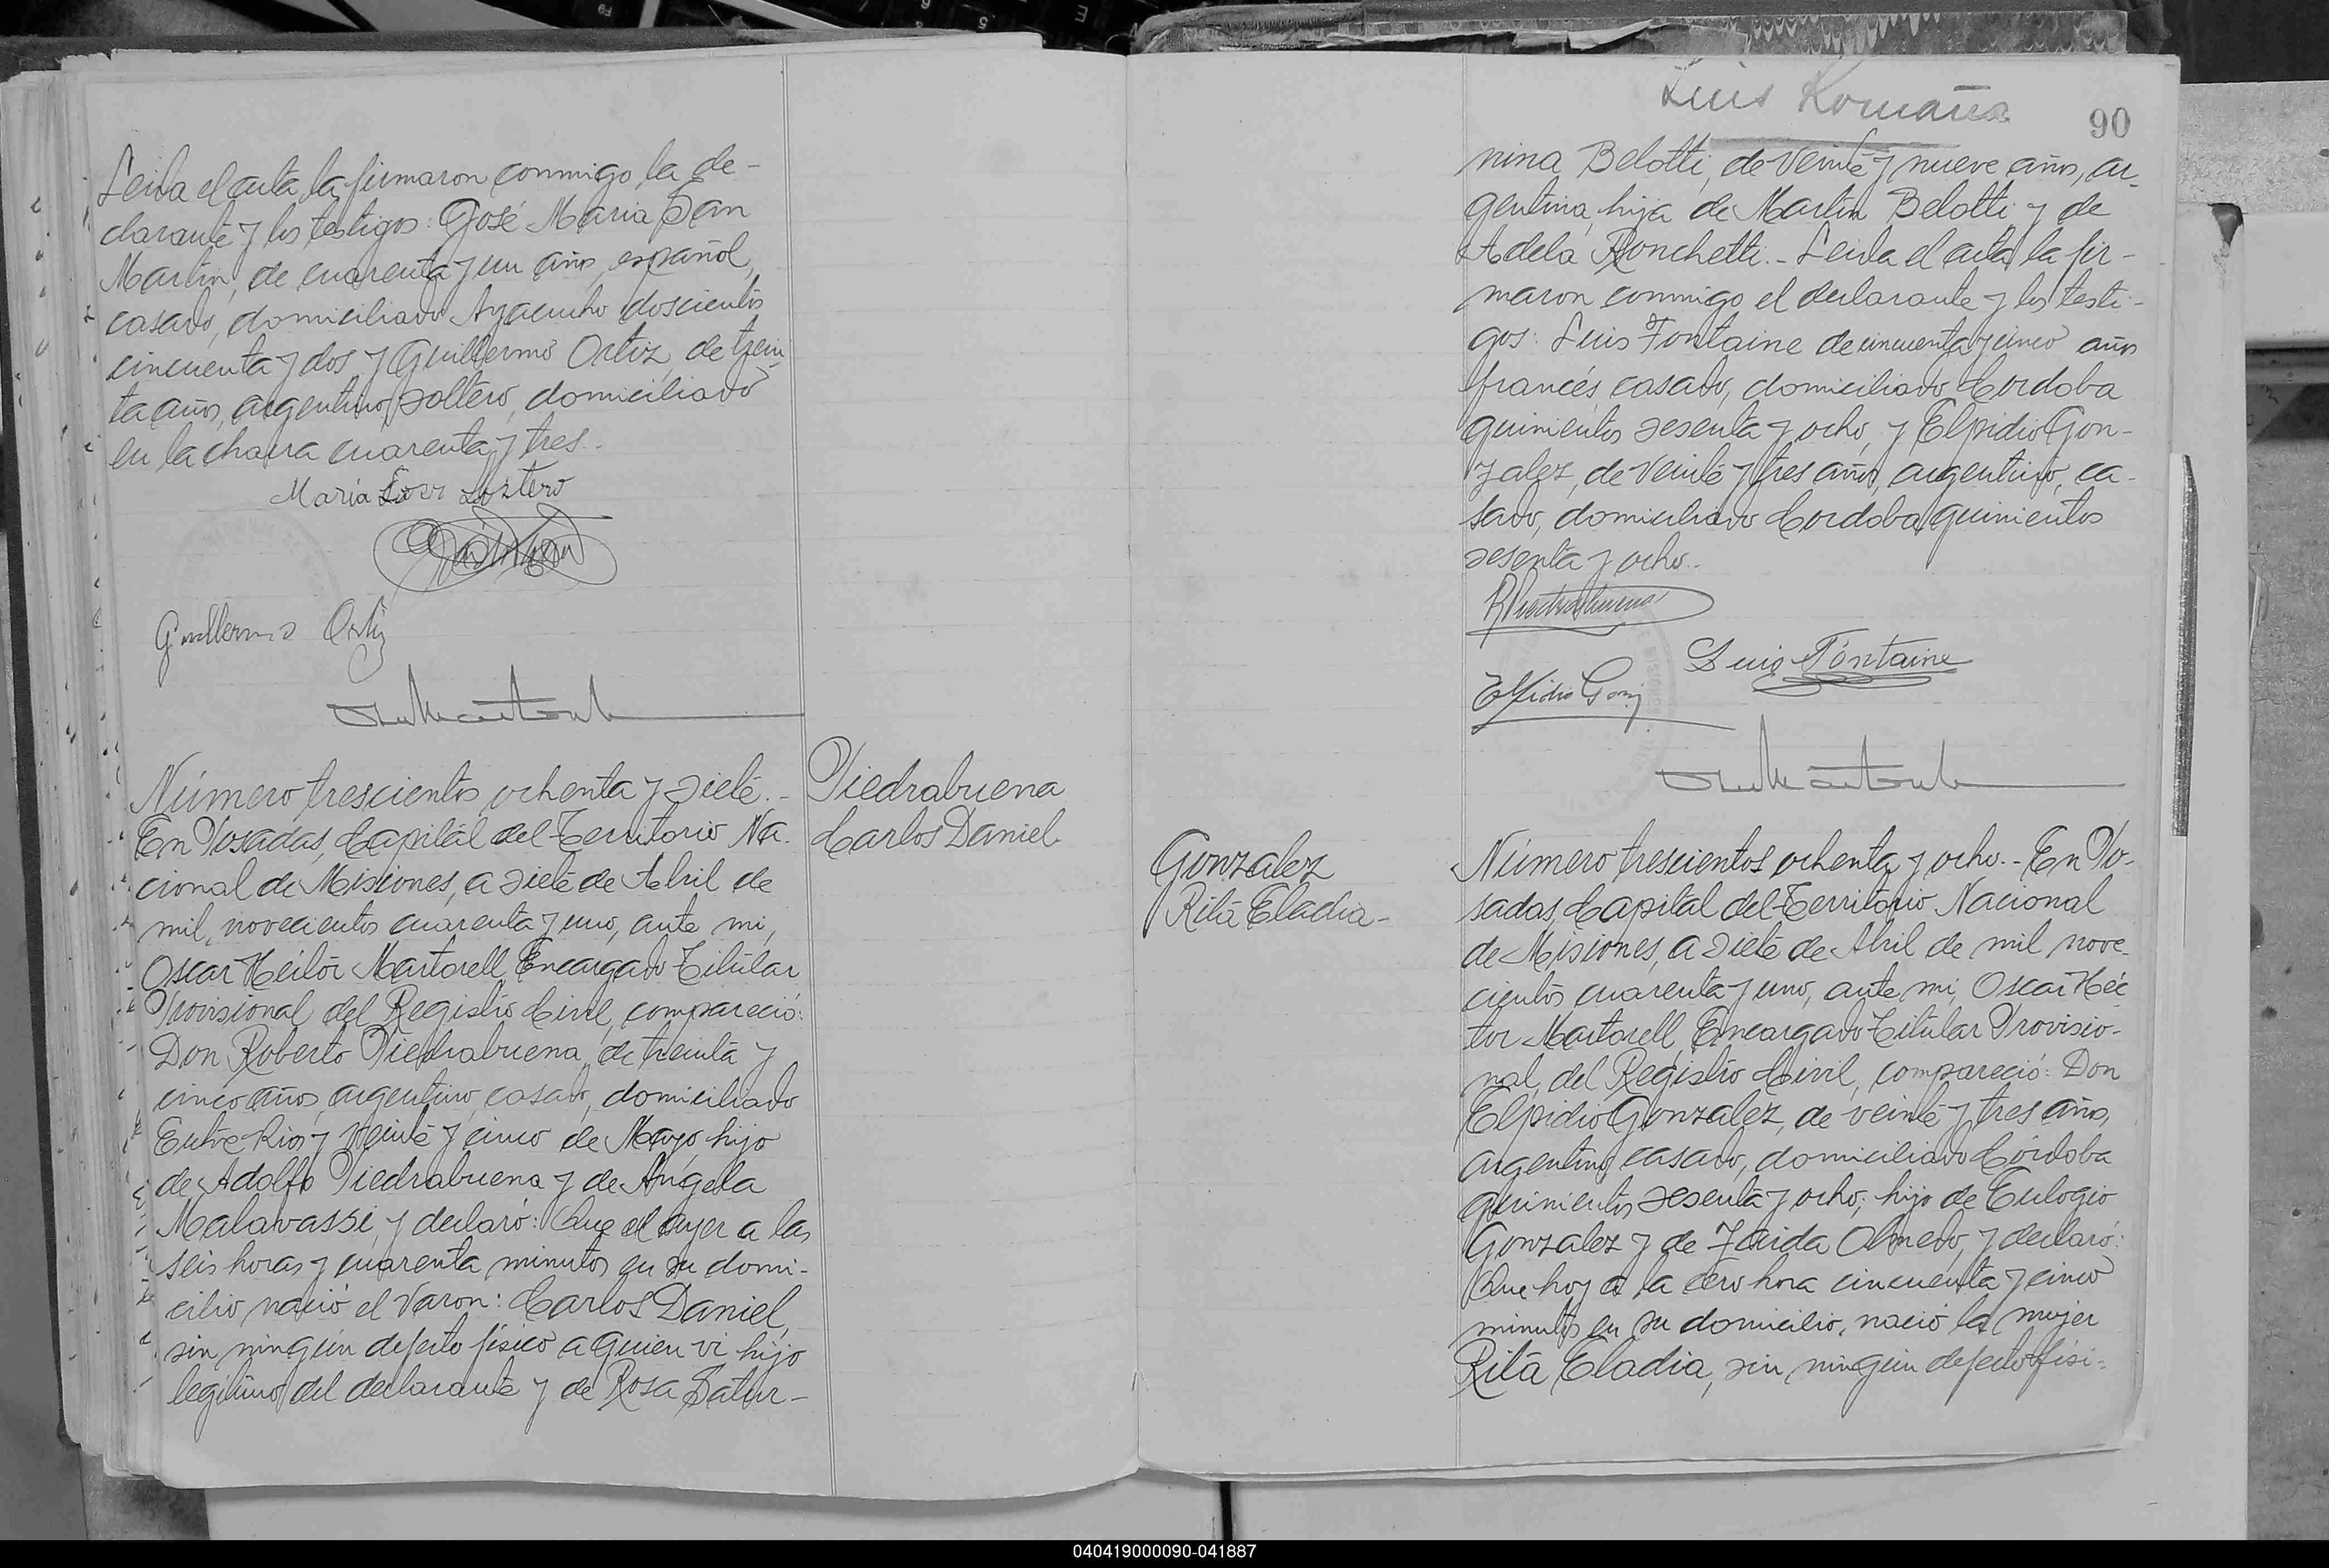 Leida el acta, la firmaron conmigo la de-
clarante y los testigos: José Maria San
Martin, de cuarenta y un años, español,
casado, domiciliado Ayacucho doscientos
cincuenta y dos y Guillermo Ortiz, de trein-
ta años, argentino, soltero, domiciliado
en la chacra cuarenta y tres.-
Maria
Guillermo Ortiz
Número trescientos ochenta y siete.-
En Posadas, Capital del Territorio Na-
cional de Misiones, a siete de Abril de
mil, novecientos cuarenta y uno, ante mi,
Oscar Héctor Martorell, Encargado Titular
Provisional del Registro Civil, compareció:
Don Roberto Piedrabuena, de treinta y
cinco años, argentino, casado, domiciliado
Entre Rios y Veinte y cinco de Mayo, hijo
de Adolfo Piedrabuena y de Angela
Malavassi, y declaró: Que el ayer a las
seis horas y cuarenta minutos en su domi-
cilio nació el varon: Carlos Daniel,
sin ningún defecto físico a quien vi hijo
legítimo del declarante y de Rosa Satur-
Piedrabuena
Carlos Daniel
Luis Romaña
90
nina Belotti, de veinte y nueve años, ar-
gentina, hija de Martin Belotti y de
Adela Ronchetti.- Leida el acta la fir-
maron conmigo el declarante y los testi-
gos: Luis Fontaine de cincuenta y cinco años
francés, casado, domiciliado Cordoba
quinientos sesenta y ocho, y Elpidio Gon-
zalez, de veinte y tres años, argentino, ca-
sado, domiciliado Cordoba quinientos
sesenta y ocho.-
RPiedrabuena
Luis Fontaine
Elpidio Gonz
Gonzalez
Rita Eladia-
Número trescientos ochenta y ocho.- En Po-
sadas, Capital del Territorio Nacional
de Misiones, a siete de Abril de mil nove-
cientos cuarenta y uno, ante mi, Oscar Héc
tor Martorell, Encargado Titular Provisio-
nal, del Registro Civil, compareció: Don
Elpidio Gonzalez, de veinte y tres años,
argentino, casado, domiciliado Córdoba
quinientos sesenta y ocho; hijo de Eulogio
Gonzalez y de Olmedo, y declaró:
Que hoy a la cero hora cincuenta y cinco
minutos en su domicilio, nació la mujer
Rita Eladia, sin ningún defecto físi-
040419000090-041887